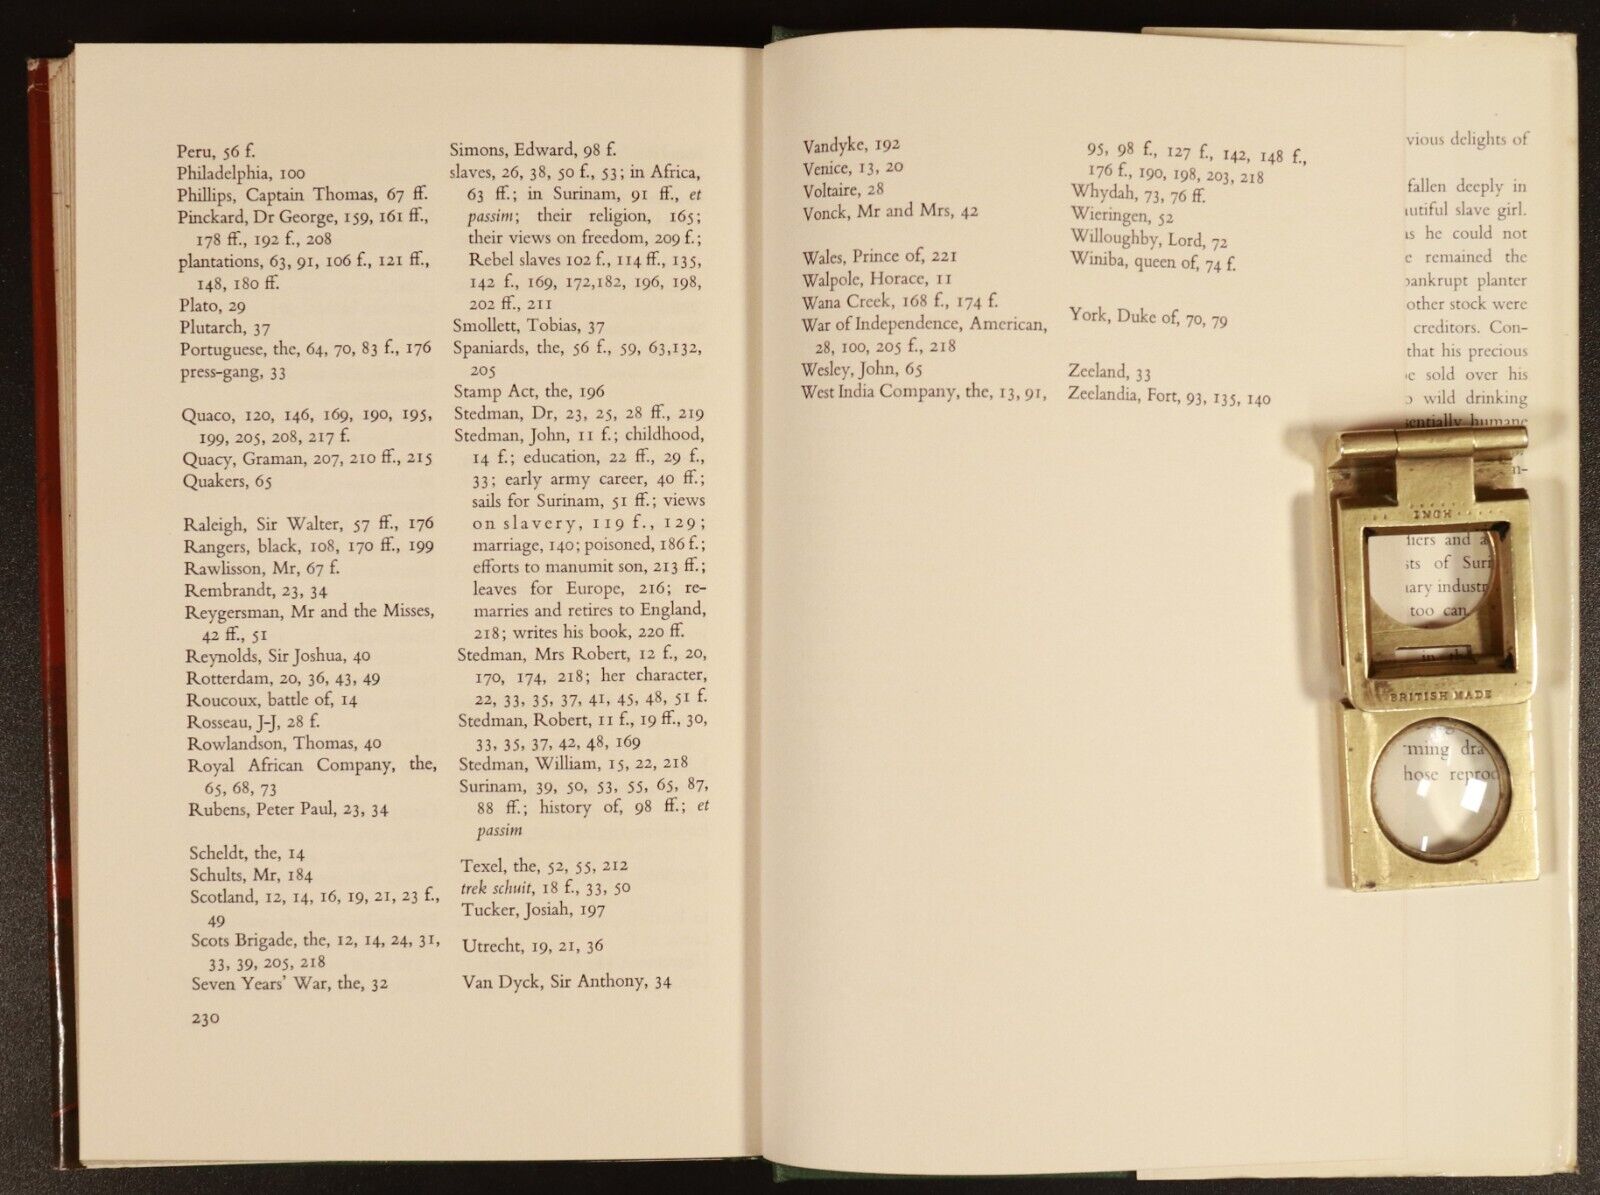 Peru, 56 f.
Philadelphia, 100
Phillips, Captain Thomas, 67 ff.
Pinckard, Dr George, 159, 161 ff.,
178 ff., 192 f., 208
plantations, 63, 91, 106 f., 121 ff.,
148, 180 ff.
Plato, 29
Plutarch, 37
Portuguese, the, 64, 70, 83 f., 176
press-gang, 33
Quaco, 120, 146, 169, 190, 195,
199, 205, 208, 217 f.
Quacy, Graman, 207, 210 ff., 215
Quakers, 65
Raleigh, Sir Walter, 57 ff., 176
Rangers, black, 108, 170 ff., 199
Rawlisson, Mr, 67 f.
Rembrandt, 23, 34
Reygersman, Mr and the Misses,
42 ff., 51
Reynolds, Sir Joshua, 40
Rotterdam, 20, 36, 43, 49
Roucoux, battle of, 14
Rosseau, J-J, 28 f.
Rowlandson, Thomas, 40
Royal African Company, the,
65, 68, 73
Rubens, Peter Paul, 23, 34
Scheldt, the, 14
Schults, Mr, 184
Scotland, 12, 14, 16, 19, 21, 23 f.,
49
Scots Brigade, the, 12, 14, 24, 31,
33, 39, 205, 218
Seven Years' War, the, 32
230
Simons, Edward, 98 f.
slaves, 26, 38, 50 f., 53; in Africa,
63 ff.; in Surinam, 91 ff., et
passim; their religion, 165;
their views on freedom, 209 f.;
Rebel slaves 102 f., 114 ff., 135,
142 f., 169, 172,182, 196, 198,
202 ff., 211
Smollett, Tobias, 37
Spaniards, the, 56 f., 59, 63,132,
205
Stamp Act, the, 196
Stedman, Dr, 23, 25, 28 ff., 219
Stedman, John, 11 f.; childhood,
14 f.; education, 22 ff., 29 f.,
33; early army career, 40 ff.;
sails for Surinam, 51 ff.; views
on slavery, 119 f., 129;
marriage, 140; poisoned, 186 f.;
efforts to manumit son, 213 ff.;
leaves for Europe, 216; re-
marries and retires to England,
218; writes his book, 220 ff.
Stedman, Mrs Robert, 12 f., 20,
170, 174, 218; her character,
22, 33, 35, 37, 41, 45, 48, 51 f.
Stedman, Robert, 11 f., 19 ff., 30,
33, 35, 37, 42, 48, 169
Stedman, William, 15, 22, 218
Surinam, 39, 50, 53, 55, 65, 87,
88 ff.; history of, 98 ff.; et
passim
Texel, the, 52, 55, 212
trek schuit, 18 f., 33, 50
Tucker, Josiah, 197
Utrecht, 19, 21, 36
Van Dyck, Sir Anthony, 34
Vandyke, 192
Venice, 13, 20
Voltaire, 28
Vonck, Mr and Mrs, 42
Wales, Prince of, 221
Walpole, Horace, 11
Wana Creek, 168 f., 174 f.
War of Independence, American,
28, 100, 205 f., 218
Wesley, John, 65
West India Company, the, 13, 91,
95, 98 f., 127 f., 142, 148 f.,
176 f., 190, 198, 203, 218
Whydah, 73, 76 ff.
Wieringen, 52
Willoughby, Lord, 72
Winiba, queen of, 74 f.
York, Duke of, 70, 79
Zeeland, 33
Zeelandia, Fort, 93, 135, 140
vious delights of
fallen deeply in
slave girl.
he could not
remained the
planter
other stock were
creditors. Con-
that his precious
sold over his
wild drinking
humane
and
of
too can
INCH
BRITISH MADE